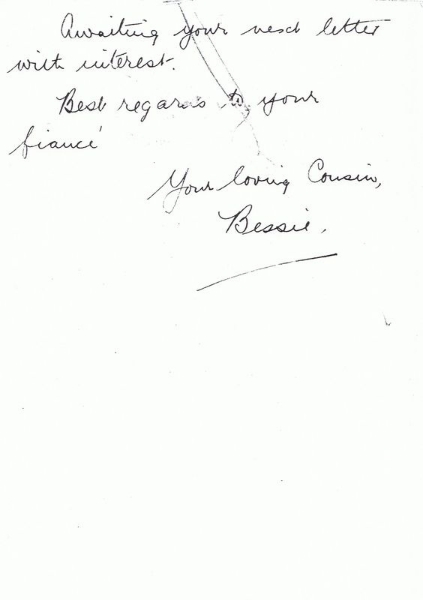 Awaiting your next letter
with interest.
Best regards to your
fiancé
Your loving Cousin,
Bessie.